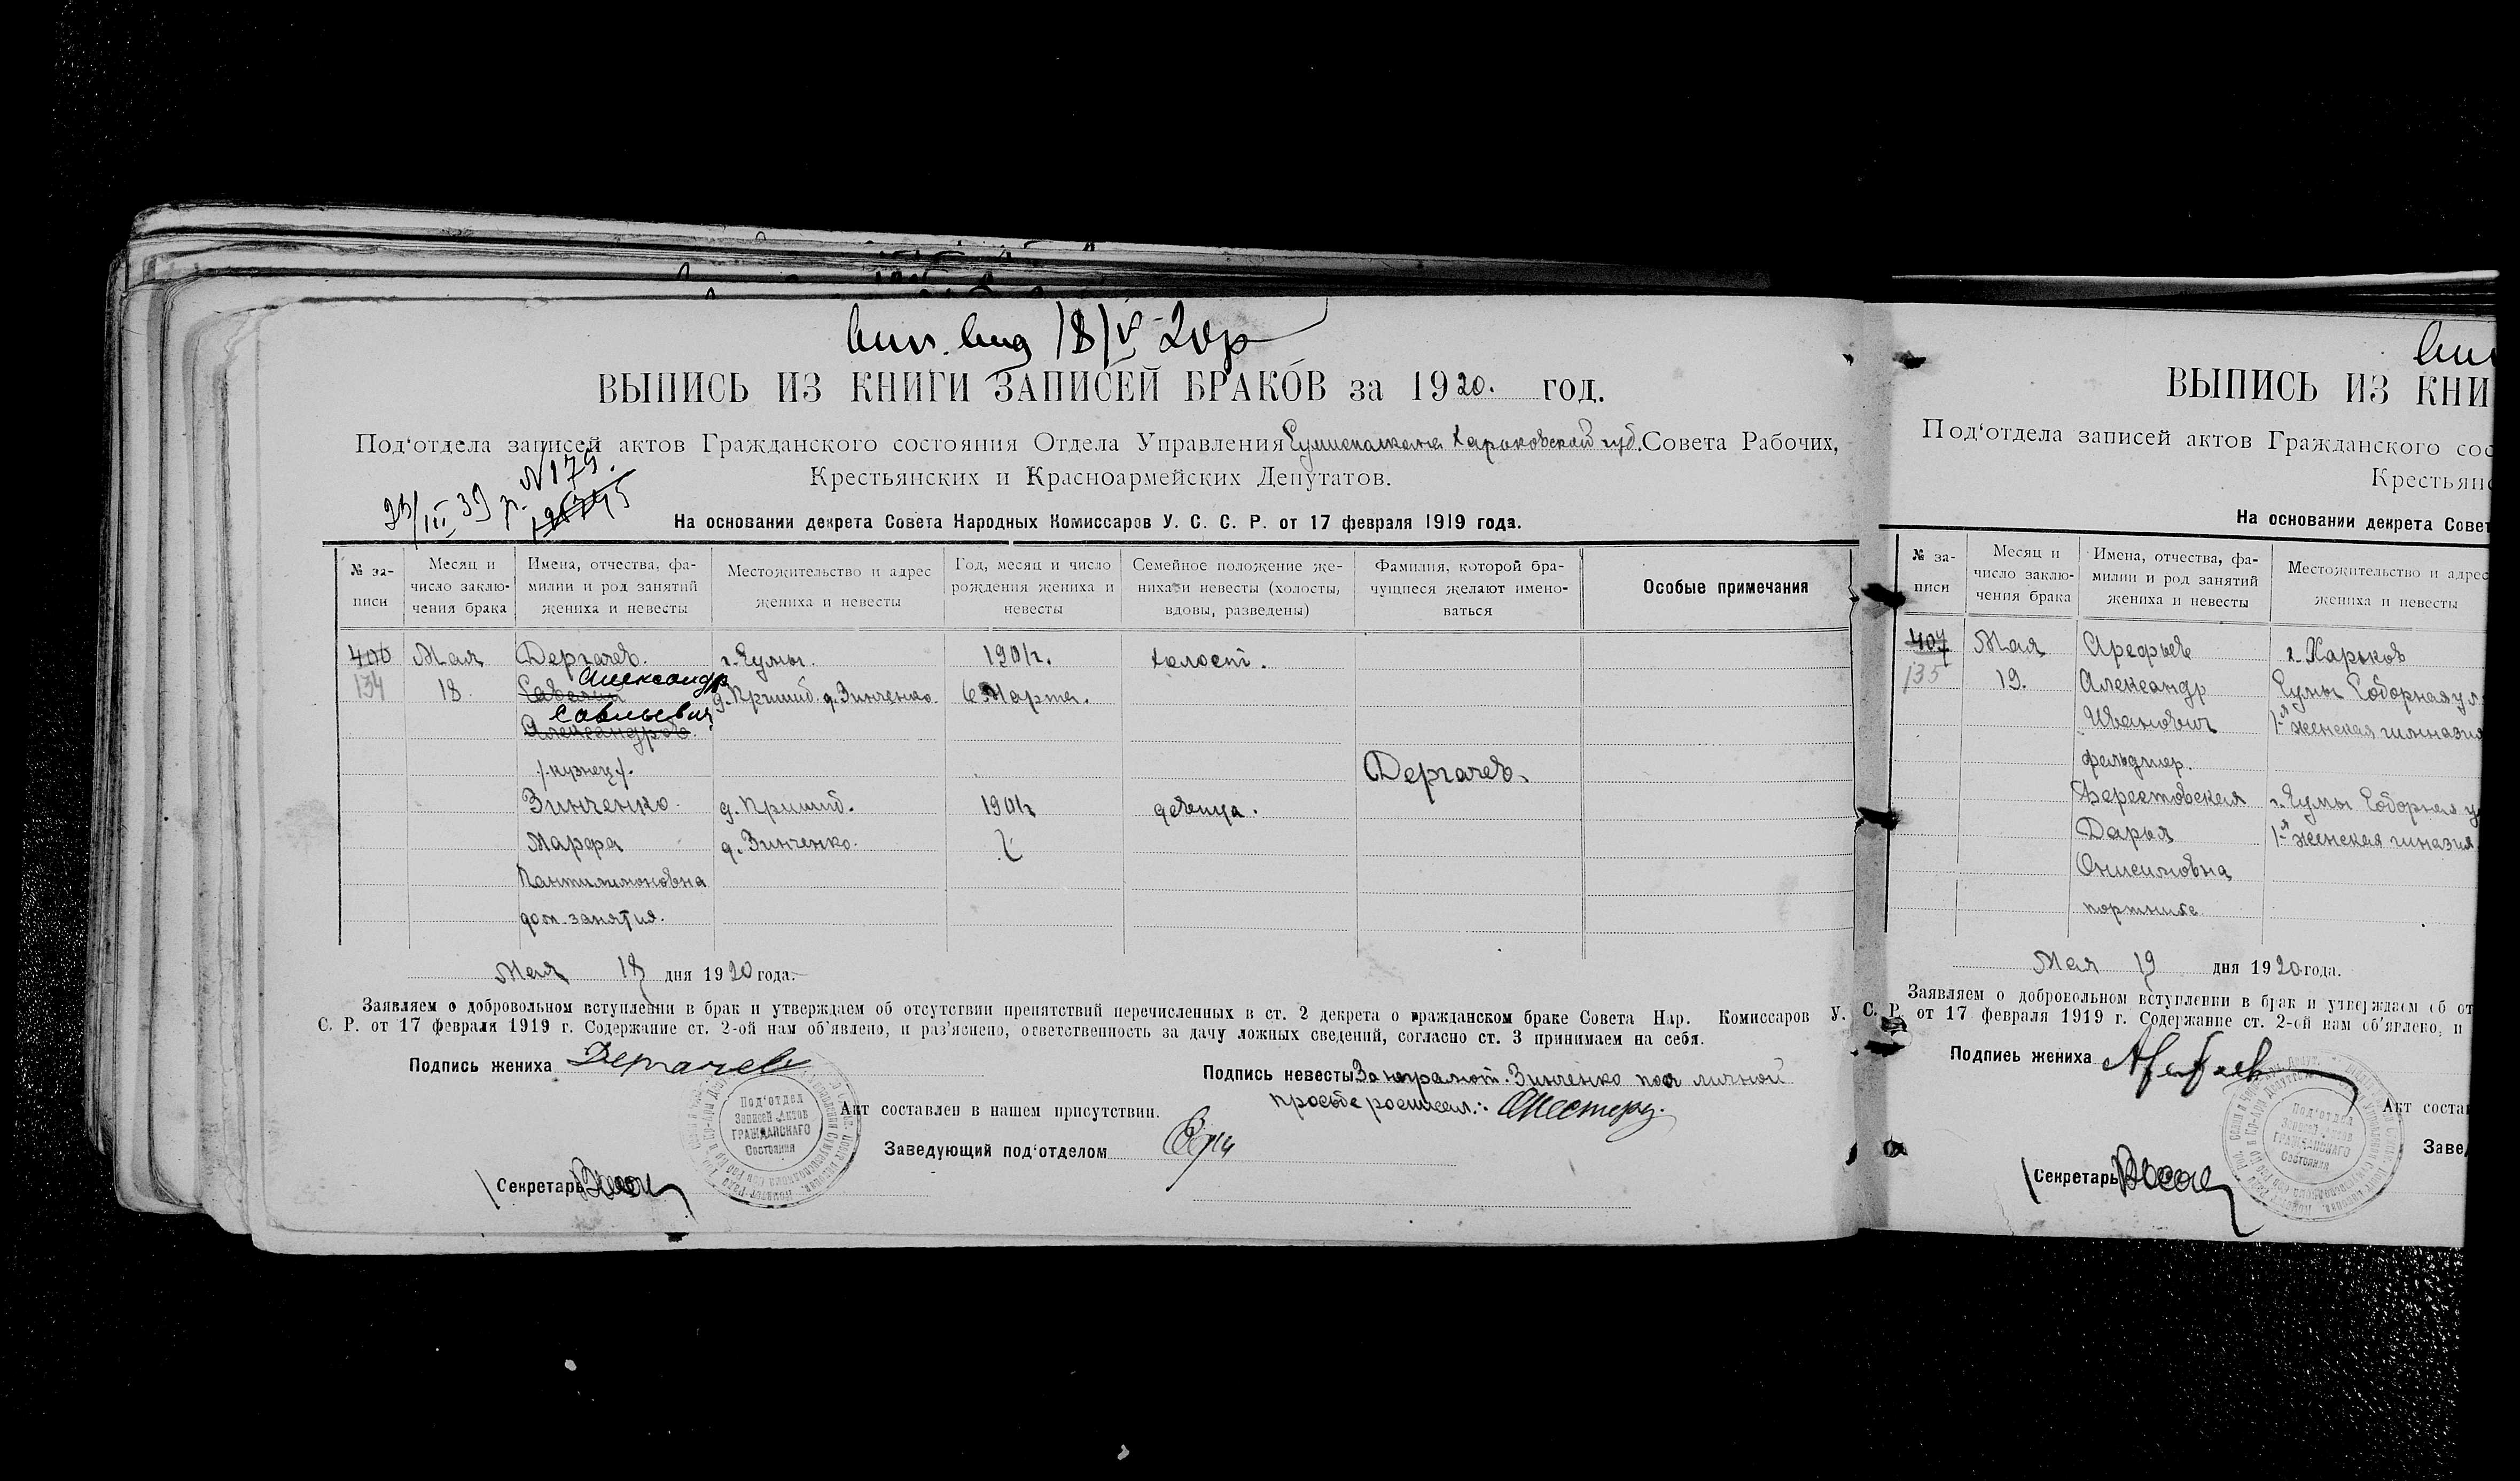 18/V 20р
ВЫПИСЬ ИЗ КНИГИ ЗАПИСЕЙ БРАКОВ за 1920. год.
Под'отдела записей актов Гражданского состояния Отдела Управления Харьковской губ. Совета Рабочих,
Крестьянских и Красноармейских Депутатов.
N 179.
23/III 39 р.
На основании декрета Совета Народных Комиссаров У. С. С. Р. от 17 февраля 1919 года.
№ за-
писи
Месяц и
число заклю-
чения брака
Имена, отчества, фа-
милии и род занятий
жениха и невесты
Местожительство и адрес
жениха и невесты
Год, месяц и число
рождения жениха и
невесты
Семейное положение же-
ниха и невесты (холосты,
вдовы, разведены)
Фамилия, которой бра-
чущиеся желают имено-
ваться
Особые примечания
406 Мая Дергачев. г. Сумы. 1901г. холост.
Александр
134 18 Савелий д. Пришиб. д. Зинченко 6 Марта.
Савельевич
Александров
/.кузнец./. Дергачев.
Зинченко д. Пришиб. 1901г девица.
Марфа д. Зинченко.
Пантилимоновна
дом. занятия.
Мая 18 дня 1920 года.
Заявляем о добровольном вступлении в брак и утверждаем об отсутствии препятствий перечисленных в ст. 2 декрета о гражданском браке Совета Нар. Комиссаров У.
С. Р. от 17 февраля 1919 г. Содержание ст. 2-ой нам об'явлено, и раз'яснено, ответственность за дачу ложных сведений, согласно ст. 3 принимаем на себя.
Подпись жениха Дергачев
Подпись невесты За неграмот. Зинченко по личной
просьбе
Акт составлен в нашем присутствии.
Заведующий под'отделом
Секретарь
Под'отдел
Записей Актов
ГРАЖДАНСКАГО
Состояния
ВЫПИСЬ ИЗ КНИ
Под'отдела записей актов Гражданского сос
Крестьянс
На основании декрета Совет
№ за-
писи
Месяц и
число заклю-
чения брака
Имена, отчества, фа-
милии и род занятий
жениха и невесты
Местожительство и адрес
жениха и невесты
407 Мая Арефьев г. Харьков
135 19. Александр Сумы Соборная ул
Иванович 1-я женская гимназия
фельдшер.
Берестовская г. Сумы Соборная у
Дарья 1-я женская гиназия
Онисимовна
портниха
Мая 19 дня 1920 года.
Заявляем о добровольном вступлении в брак и утверждаем об от
С. Р. от 17 февраля 1919 г. Содержание ст. 2-ой нам об'явлено, и
Подпись жениха Арефьев
Акт состав
Завед
Секретарь
Под'отдел
Записей Актов
ГРАЖДАНСКАГО
Состояния